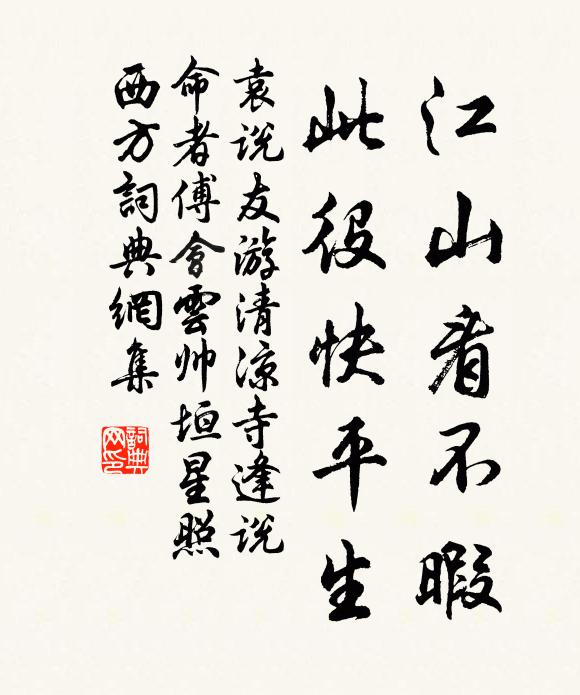 江山看不暇
此役快平生
袁说友游清凉寺逢说
命者傅會雲帅垣星照
西方詞典網集
詞典
网印